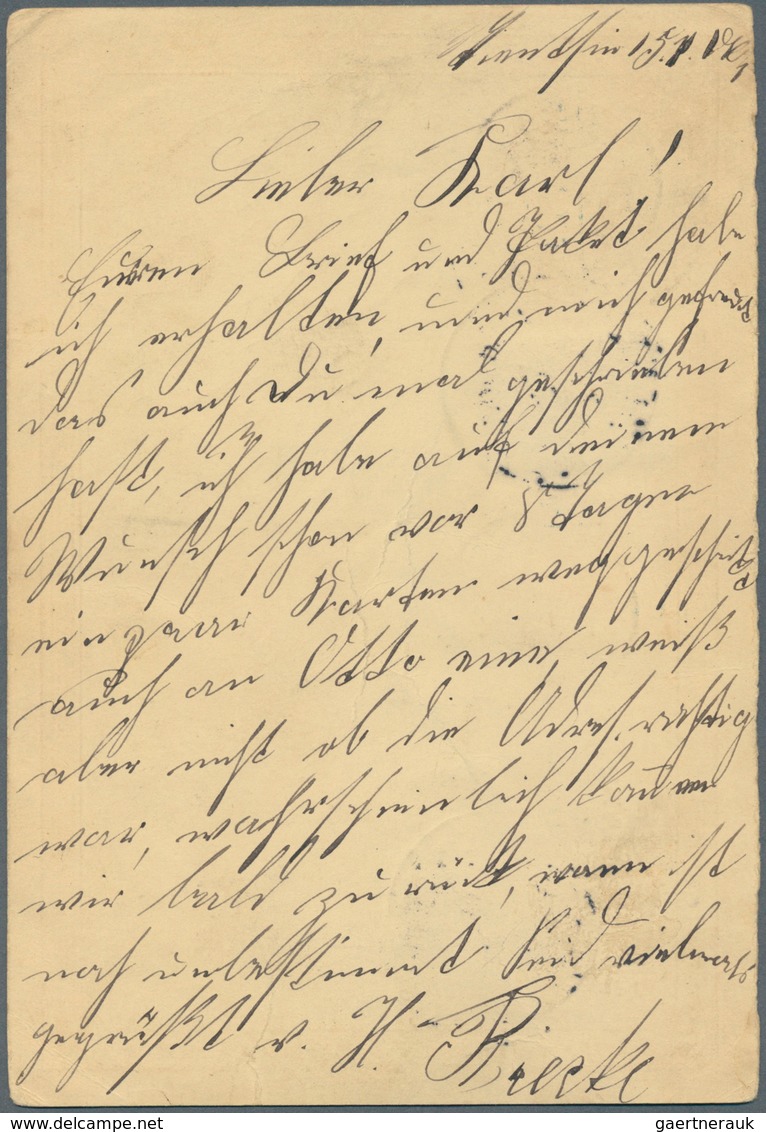 Tientsin 15.1.
Lieber Karl!
Euren Brief und Paket habe
ich erhalten, und mich gefreut
das auch Du mal geschrieben
hast, ich habe auf deinem
Wunsch schon vor 8 Tagen
ein paar Karten weggeschickt
auch an Otto eine, weiß
aber nicht ob die Adres. richtig
war, wahrscheinlich kommen
wir bald zurück, wann ist
noch unbestimmt Seid vielmals
gegrüßt v. H.
delcampe.net
gaertnerauk